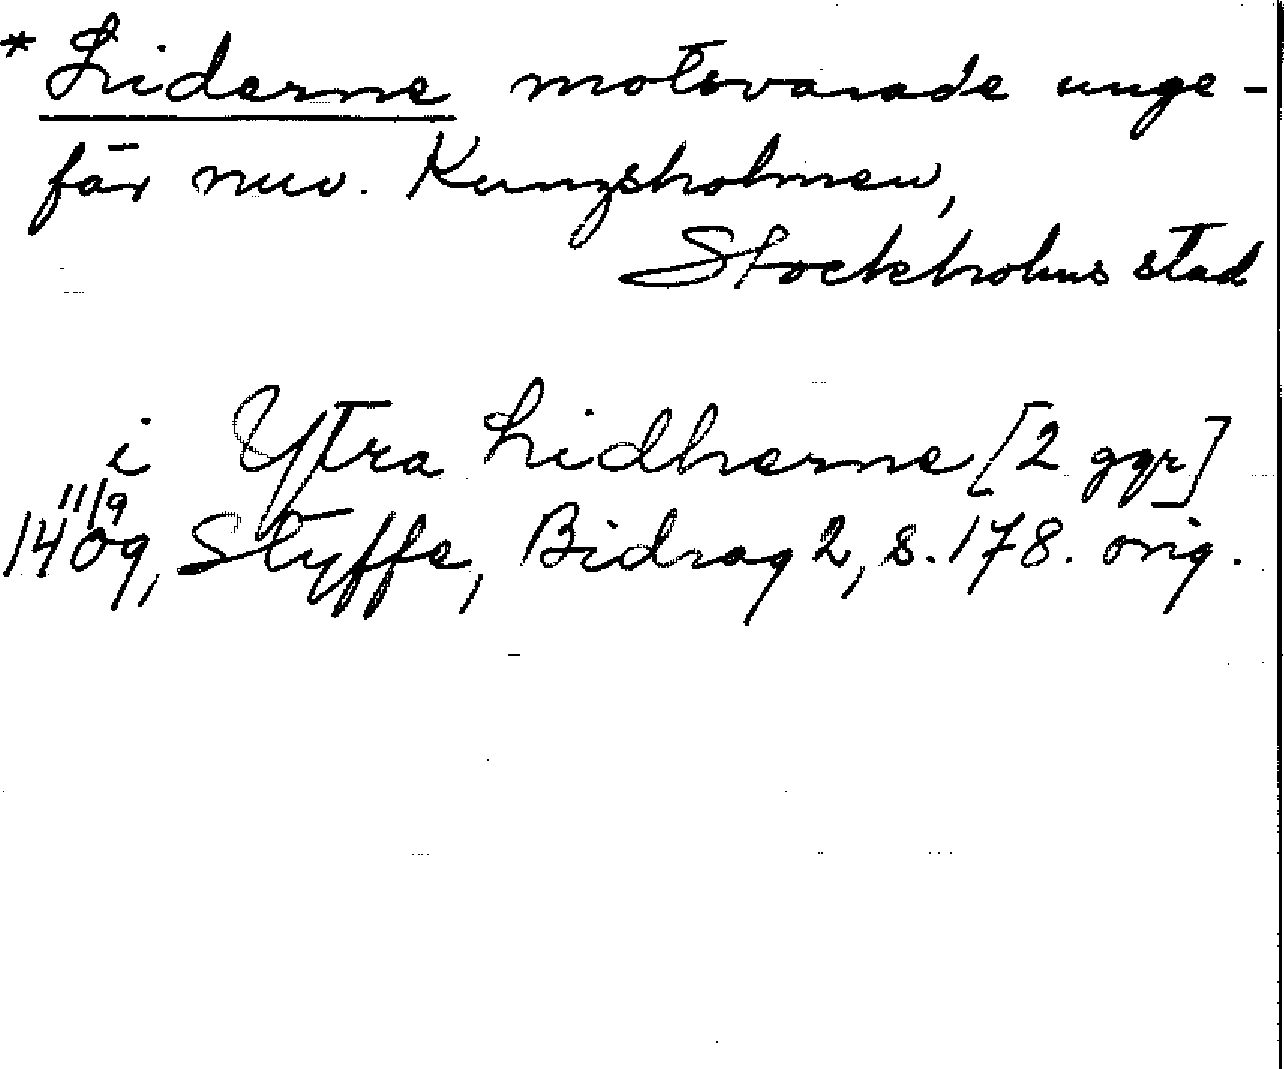 * Liderne motsvarade unge-
fär nuv. Kungsholmen,
Stockholms stad
i Ytra Lidherne [2 ggr]
11/9
1409, Styffe, Bidrag 2, s. 178. orig.